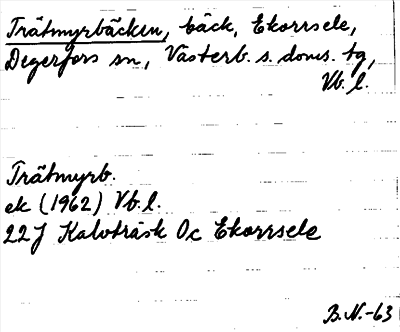 Trätmyrbäcken, bäck, Ekorrsele,
Degerfors sn, Västerb. s. doms. tg,
Vb. l.
Trätmyrb.
ek (1962) Vb. l.
22J Kalvträsk Oc Ekorrsele
B.N.-63